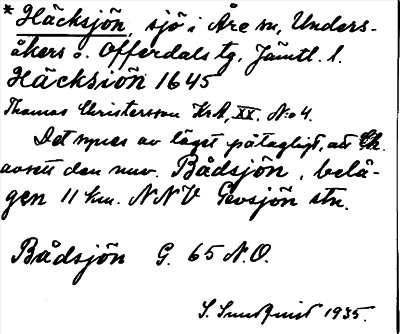 * Häcksjön, sjö i Åre sn, Unders-
åkers o. Offerdals tg, Jämtl. l.
Häcksiön 1645
Thomas Christersson KrA, XX. No 4.
Det synes av läget påtagligt, att Ch.
avsett den nuv. Bådsjön, belä-
gen 11 km. NNV Gevsjön stn.
Bådsjön G. 65 N.O.
S. Sundquist 1935.